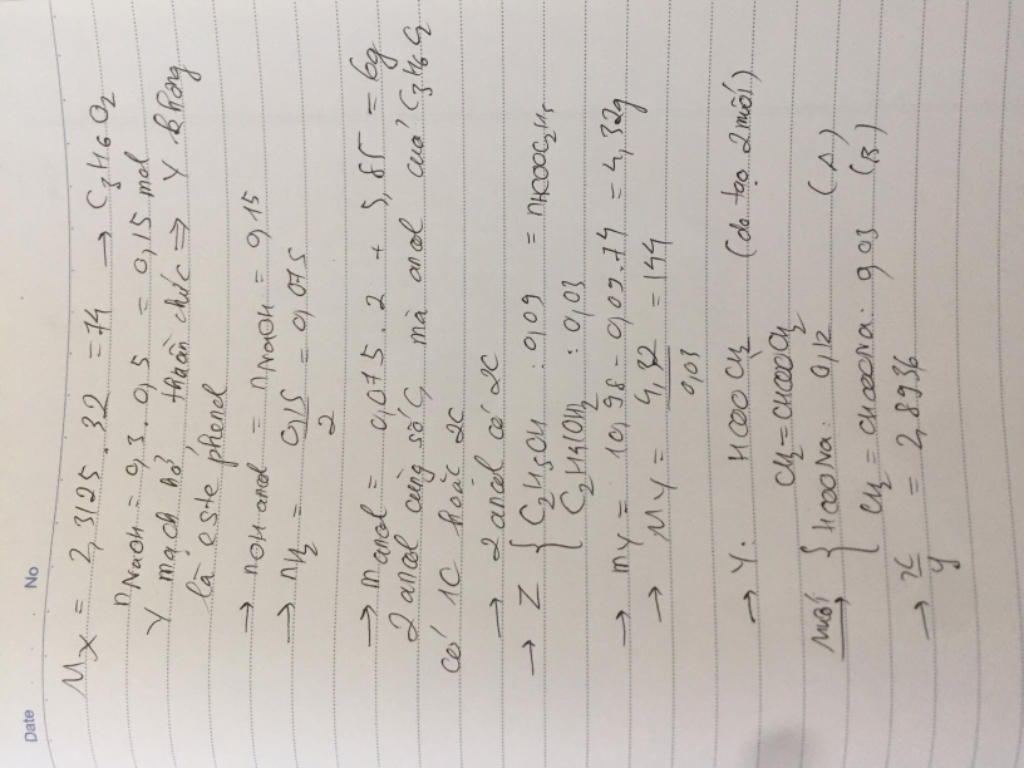 Date No
M_X = 2,3125 . 32 = 74 → C3H6O2
nNaOH = 0,3 . 0,5 = 0,15 mol
Y mạch hở thuần chức ⇒ Y không
là este phenol
→ nOH ancol = nNaOH = 0,15
→ nH2 = 0,15/2 = 0,075
→ m ancol = 0,075 . 2 + 5,85 = 6g
2 ancol cùng số C, mà ancol của C3H6O2
có 1C hoặc 2C
→ 2 ancol có 2C
→ Z { C2H5OH : 0,09 = nHCOOC2H5
C2H4(OH)2 : 0,03
→ mY = 10,98 - 0,09.74 = 4,32g
→ MY = 4,32/0,03 = 144
→ Y : HCOOCH2 (do tạo 2 muối)
CH2=CHCOOCH2
muối → { HCOONa : 0,12 (A)
CH2=CHCOONa : 0,03 (B)
→ x/y = 2,8936